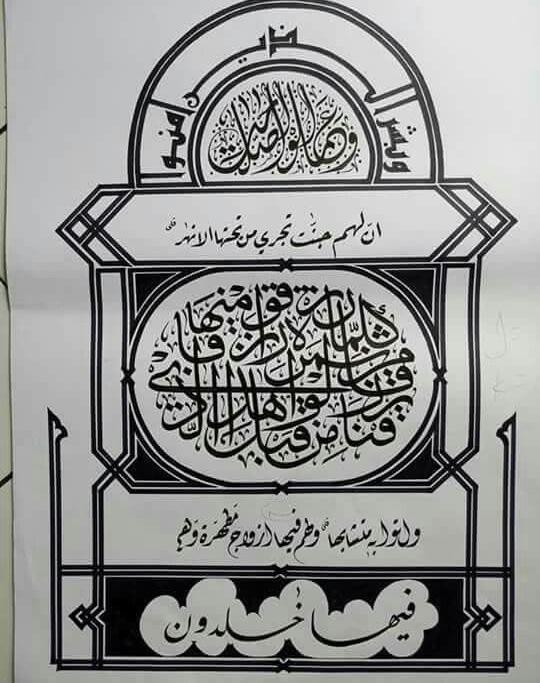 وبشر الذين امنوا
وعملوا الصلحت
ان لهم جنت تجري من تحتها الانهر
كلما رزقوا منها من ثمرة رزقا قالوا هذا الذي رزقنا من قبل
واتوا به متشابها ولهم فيها ازواج مطهرة وهم
فيها خلدون